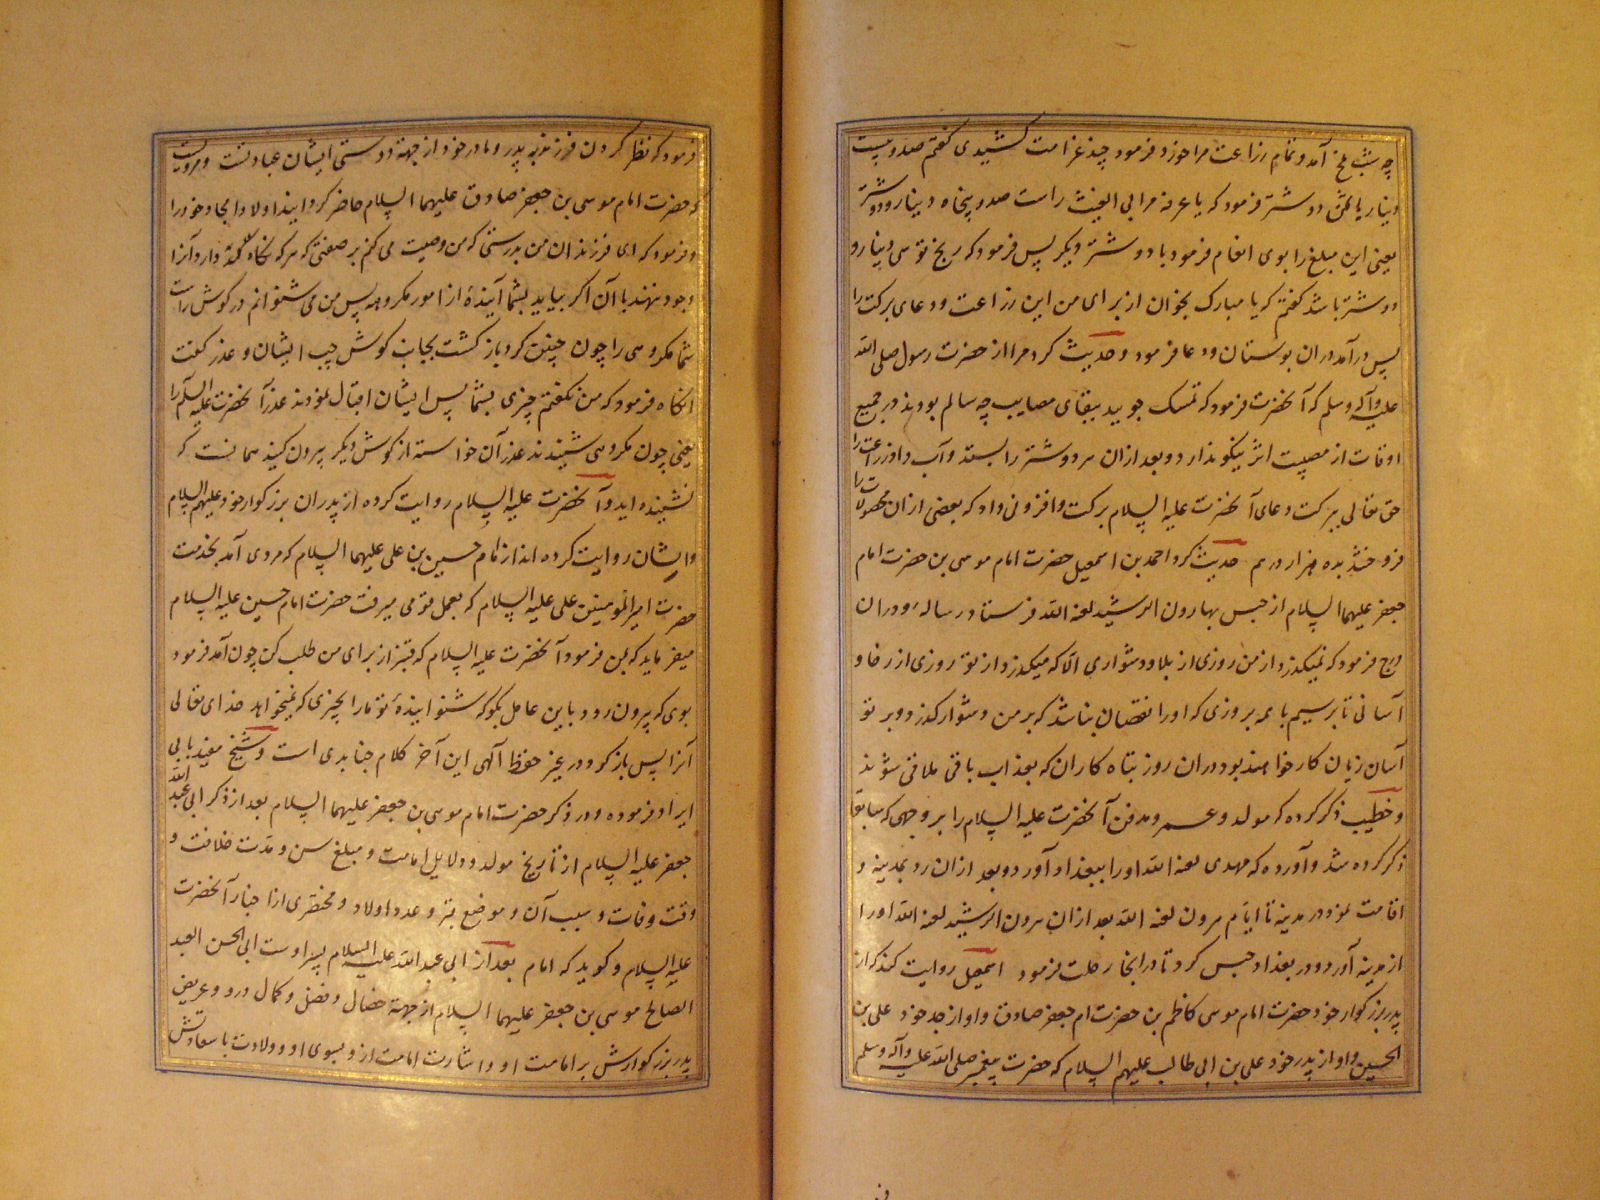 چه شب ملخ آمد و تمام زراعت مرا خورد فرمود چند غرامت کشیدی گفتم صد و بیست
دینار با ثمن دو شتر فرمود که یا عرفه مر ابی الغیث راست صد و پنجاه دینار و دو شتر
یعنی این مبلغ را بوی انعام فرمود با دو شتر دیکر پس فرمود که ربح تو سی دینار و
دو شتر باشد گفتم که یا مبارک بخوان از برای من این زراعت و دعای برکت را
پس درآمد دران بوستان و دعا فرمود و حدیث کرد مرا از حضرت رسول صلی الله
علیه وآله وسلم که آنحضرت فرمود که تمسک جویید ببقای مصایب چه سالم بودند در جمیع
اوقات از مصیبت اثر نیکو ندارد و بعد ازان هر دو شتر را بستند و آب داد زراعت را
حق تعالی ببرکت دعای آنحضرت علیه السلام برکت و افزونی داد که بعضی ازان محصولات را
فروختند بده هزار درهم حدیث کرد احمد بن اسمعیل حضرت امام موسی بن حضرت امام
جعفر علیهما السلام از حبس بهارون الرشید لعنه الله فرستاد رساله و دران
درج فرمود که نمیکذرد از من روزی از بلا و دشواری الا که میکذرد از تو روزی از رخا و
آسانی تا برسیم با همه بروزی که او را نقصان نباشد که بر من دشوار کذرد و بر تو
آسان زیان کار خواهند بود دران روز تباه کاران که بعذاب باقی ملاقی شوند
و خطیب ذکر کرده که مولد و عمر و مدفن آنحضرت علیه السلام را بر وجهی که سابقا
ذکر کرده شد و آورده که مهدی لعنه الله او را ببغداد آورد و بعد ازان رد بمدینه و
اقامت نمود در مدینه تا ایام هرون لعنه الله بعد ازان هرون الرشید لعنه الله او را
از مدینه آورد و در بغداد حبس کرد تا در انجا رحلت فرمود اسمعیل روایت کند که از
پدر بزرکوار خود حضرت امام موسی کاظم بن حضرت امام جعفر صادق و او از جد خود علی بن
الحسین و او از پدر خود علی بن ابی طالب علیهم السلام که حضرت پیغمبر صلی الله علیه وآله وسلم
فرمود که نظر کردن فرزند به پدر و مادر خود از جهة دوستی ایشان عبادتست و مرویست
که حضرت امام موسی بن جعفر صادق علیهما السلام حاضر کردانید اولاد امجاد خود را
و فرمود که ای فرزندان من بدرستی که من وصیت می کنم بر صفتی که هر که نکاه دارد آنرا
و جود نهند با آن اکر بیاید بشما آینده از امور مکروهه پس من می شنوانم در کوش راست
شما مکروهی را چون چنین کرد باز کشت بجانب کوش چپ ایشان و عذر کفت
آنکاه فرمود که من نکفتم چیزی بشما پس ایشان اقبال نمودند عذر آنحضرت علیه السلام را
یعنی چون مکروهی شنیدند عذر آن خواسته از کوش دیکر بیرون کنید همانست که
نشنیده اید و آنحضرت علیه السلام روایت کرده از پدران بزرکوار خود علیهم السلام
و ایشان روایت کرده اند از امام حسین بن علی علیهما السلام که مردی آمد بخدمت
حضرت امیرالمومنین علی علیه السلام که بعمل قومی میرفت حضرت امام حسین علیه السلام
میفرماید که بمن فرمود آنحضرت علیه السلام که قنبر از برای من طلب کن چون آمد فرمود
بوی که بیرون رو و باین عامل بکو که شنوایندهٔ تو ما را بچیزی که نمیخواهد خدای تعالی
آنرا پس باز کرد در غیر حفظ آلهی این آخر کلام جنابدی است و شیخ مفید بابی
ایراد فرموده و در ذکر حضرت امام موسی بن جعفر علیهما السلام بعد از ذکر ابی عبد الله
جعفر علیه السلام از تاریخ مولد و دلایل امامت و مبلغ سن و مدت خلافت و
وقت وفات و سبب آن و موضع قبر و عدد اولاد و مختصری از اخبار آنحضرت
علیه السلام و کوید که امام بعد از ابی عبد الله علیه السلام پسر اوست ابی الحسن العبد
الصالح موسی بن جعفر علیهما السلام از جهة خصال و فضل و کمال در و و عریض
پدر بزرکوارش بر امامت او و اشارت امامت ازو بسوی او و ولادت با سعادتش